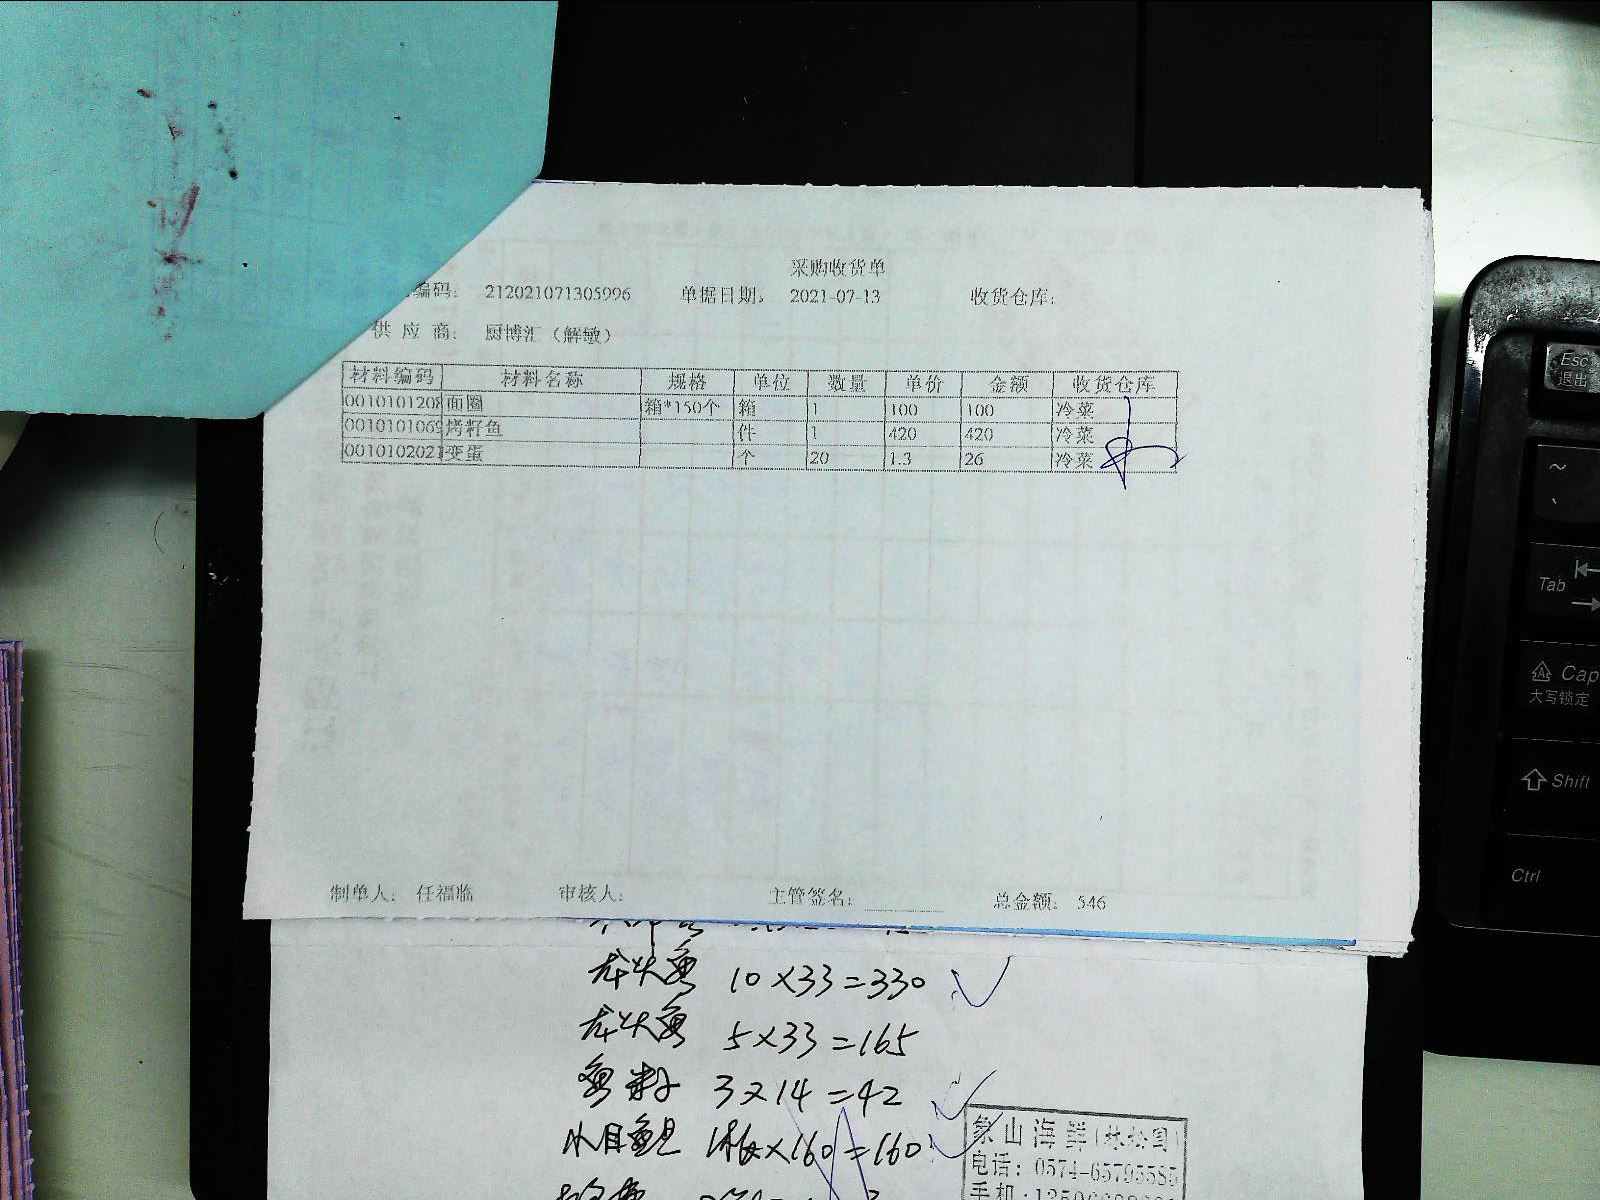 采购收货单
编码： 212021071305996 单据日期： 2021-07-13 收货仓库：
供 应 商： 厨博汇（解敏）
材料编码 材料名称 规格 单位 数量 单价 金额 收货仓库
0010101208 面圈 箱*150个 箱 1 100 100 冷菜
0010101069 烤籽鱼 件 1 420 420 冷菜
0010102021 变蛋 个 20 1.3 26 冷菜
制单人： 任福临 审核人： 主管签名： 总金额： 546
龙头鱼 10×33=330
龙头鱼 5×33=165
鱼籽 3×14=42
×160=160
象山海鲜
电话：0574-65795585
手机：
Esc
退出
~
Tab
Cap
大写锁定
Shift
Ctrl